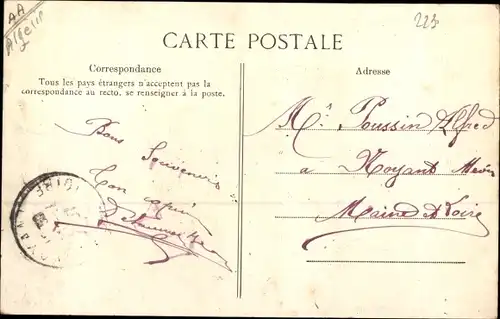 AA
Algérie
223
CARTE POSTALE
Correspondance
Tous les pays étrangers n'acceptent pas la
correspondance au recto, se renseigner à la poste.
Adresse
Bons
Souvenirs
Ton
Mr Poussin Alfred
a Noyant
Maine et Loire
LOIRE